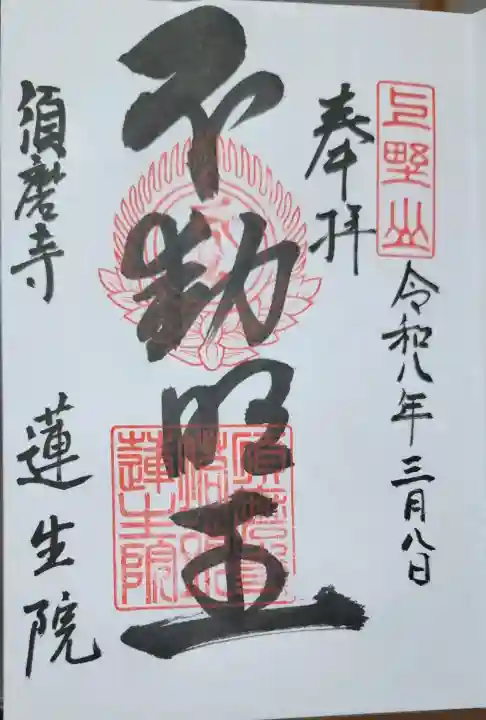 上野山
令和八年三月八日
奉拝
不動明王
須磨寺
蓮生院
蓮生院